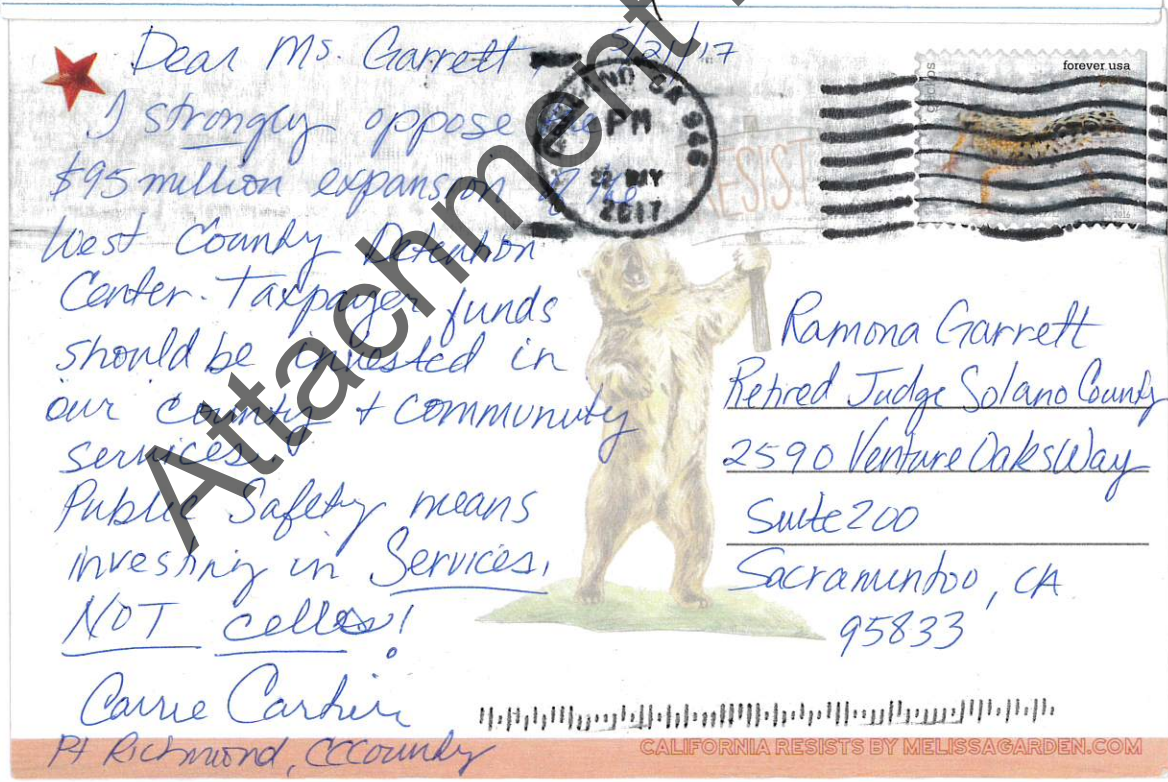 Dear Ms. Garrett, 5/21/17
I strongly oppose the
$95 million expansion of the
West County Detention
Center. Taxpayer funds
should be invested in
our county + community
services.
Public Safety means
investing in Services,
NOT cells!
Carrie
Pt Richmond, CCCounty
Attachment
CA 946
PM
MAY
2017
RESIST
forever usa
2016
Ramona Garrett
Retired Judge Solano County
2590 Venture Oaks Way
Suite 200
Sacramentoo, CA
95833
CALIFORNIA RESISTS BY MELISSAGARDEN.COM